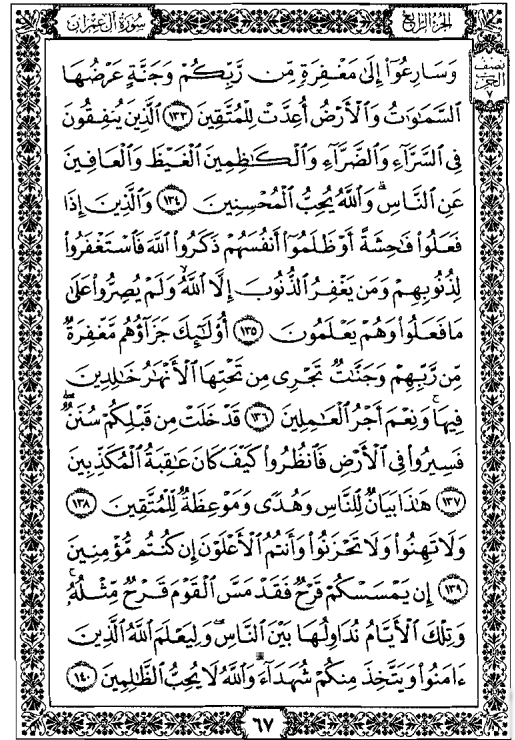 سورة آل عمران
الجزء الرابع
نصف
الحزب
وَسَارِعُوٓا۟ إِلَىٰ مَغْفِرَةٍ مِّن رَّبِّكُمْ وَجَنَّةٍ عَرْضُهَا
ٱلسَّمَٰوَٰتُ وَٱلْأَرْضُ أُعِدَّتْ لِلْمُتَّقِينَ ١٣٣ ٱلَّذِينَ يُنفِقُونَ
فِى ٱلسَّرَّآءِ وَٱلضَّرَّآءِ وَٱلْكَٰظِمِينَ ٱلْغَيْظَ وَٱلْعَافِينَ
عَنِ ٱلنَّاسِ ۗ وَٱللَّهُ يُحِبُّ ٱلْمُحْسِنِينَ ١٣٤ وَٱلَّذِينَ إِذَا
فَعَلُوا۟ فَٰحِشَةً أَوْ ظَلَمُوٓا۟ أَنفُسَهُمْ ذَكَرُوا۟ ٱللَّهَ فَٱسْتَغْفَرُوا۟
لِذُنُوبِهِمْ وَمَن يَغْفِرُ ٱلذُّنُوبَ إِلَّا ٱللَّهُ وَلَمْ يُصِرُّوا۟ عَلَىٰ
مَا فَعَلُوا۟ وَهُمْ يَعْلَمُونَ ١٣٥ أُو۟لَٰٓئِكَ جَزَآؤُهُم مَّغْفِرَةٌ
مِّن رَّبِّهِمْ وَجَنَّٰتٌ تَجْرِى مِن تَحْتِهَا ٱلْأَنْهَٰرُ خَٰلِدِينَ
فِيهَا ۚ وَنِعْمَ أَجْرُ ٱلْعَٰمِلِينَ ١٣٦ قَدْ خَلَتْ مِن قَبْلِكُمْ سُنَنٌ
فَسِيرُوا۟ فِى ٱلْأَرْضِ فَٱنظُرُوا۟ كَيْفَ كَانَ عَٰقِبَةُ ٱلْمُكَذِّبِينَ
١٣٧ هَٰذَا بَيَانٌ لِّلنَّاسِ وَهُدًى وَمَوْعِظَةٌ لِّلْمُتَّقِينَ ١٣٨
وَلَا تَهِنُوا۟ وَلَا تَحْزَنُوا۟ وَأَنتُمُ ٱلْأَعْلَوْنَ إِن كُنتُم مُّؤْمِنِينَ
١٣٩ إِن يَمْسَسْكُمْ قَرْحٌ فَقَدْ مَسَّ ٱلْقَوْمَ قَرْحٌ مِّثْلُهُۥ ۚ
وَتِلْكَ ٱلْأَيَّامُ نُدَاوِلُهَا بَيْنَ ٱلنَّاسِ وَلِيَعْلَمَ ٱللَّهُ ٱلَّذِينَ
ءَامَنُوا۟ وَيَتَّخِذَ مِنكُمْ شُهَدَآءَ ۗ وَٱللَّهُ لَا يُحِبُّ ٱلظَّٰلِمِينَ ١٤٠
٦٧